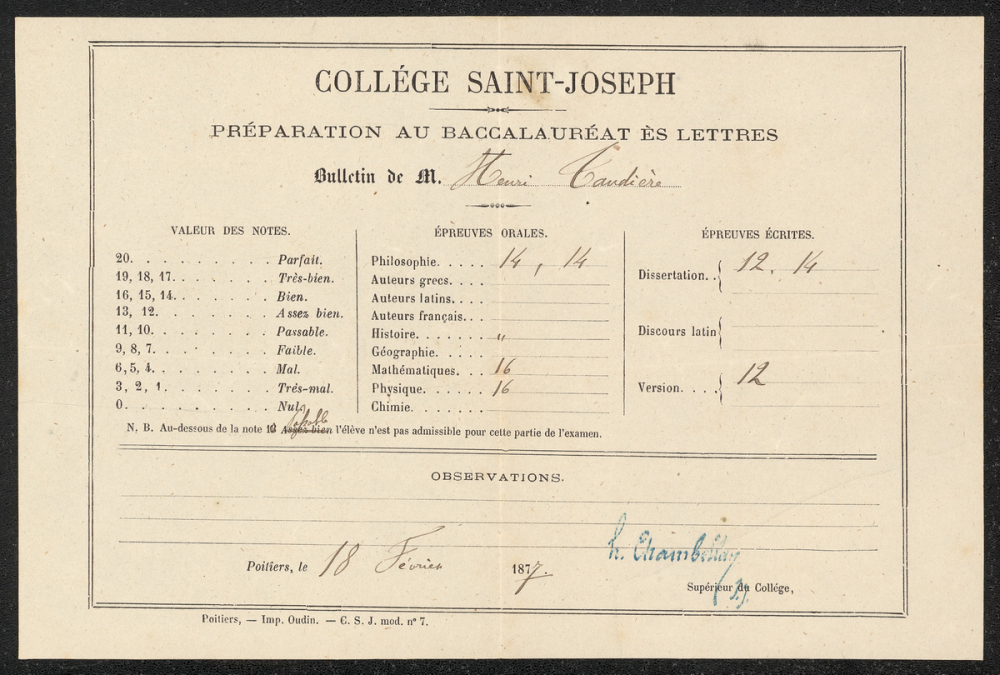 COLLÉGE SAINT-JOSEPH
PRÉPARATION AU BACCALAURÉAT ÈS LETTRES
Bulletin de M. Henri Taudière
VALEUR DES NOTES.
20. . . . . . . . . Parfait.
19, 18, 17. . . . . . . Très-bien.
16, 15, 14. . . . . . . Bien.
13, 12. . . . . . . . Assez bien.
11, 10. . . . . . . . Passable.
9, 8, 7. . . . . . . . Faible.
6, 5, 4. . . . . . . . Mal.
3, 2, 1. . . . . . . . Trés-mal.
0. . . . . . . . . Nul.
ÉPREUVES ORALES.
Philosophie. . . . . 14, 14
Auteurs grecs. . . .
Auteurs latins. . . .
Auteurs français. . .
Histoire. . . . . . "
Géographie. . . . .
Mathématiques. . . 16
Physique. . . . . . 16
Chimie. . . . . . .
ÉPREUVES ÉCRITES.
Dissertation. . { 12. 14
Discours latin {
Version. . . . { 12
N. B. Au-dessous de la note Assez bien l'élève n'est pas admissible pour cette partie de l'examen.
OBSERVATIONS.
Poitiers, le 18 Février 1877.
h. Chambellan
s.j.
Supérieur du Collége,
Poitiers, — Imp. Oudin. — C. S. J. mod. n° 7.